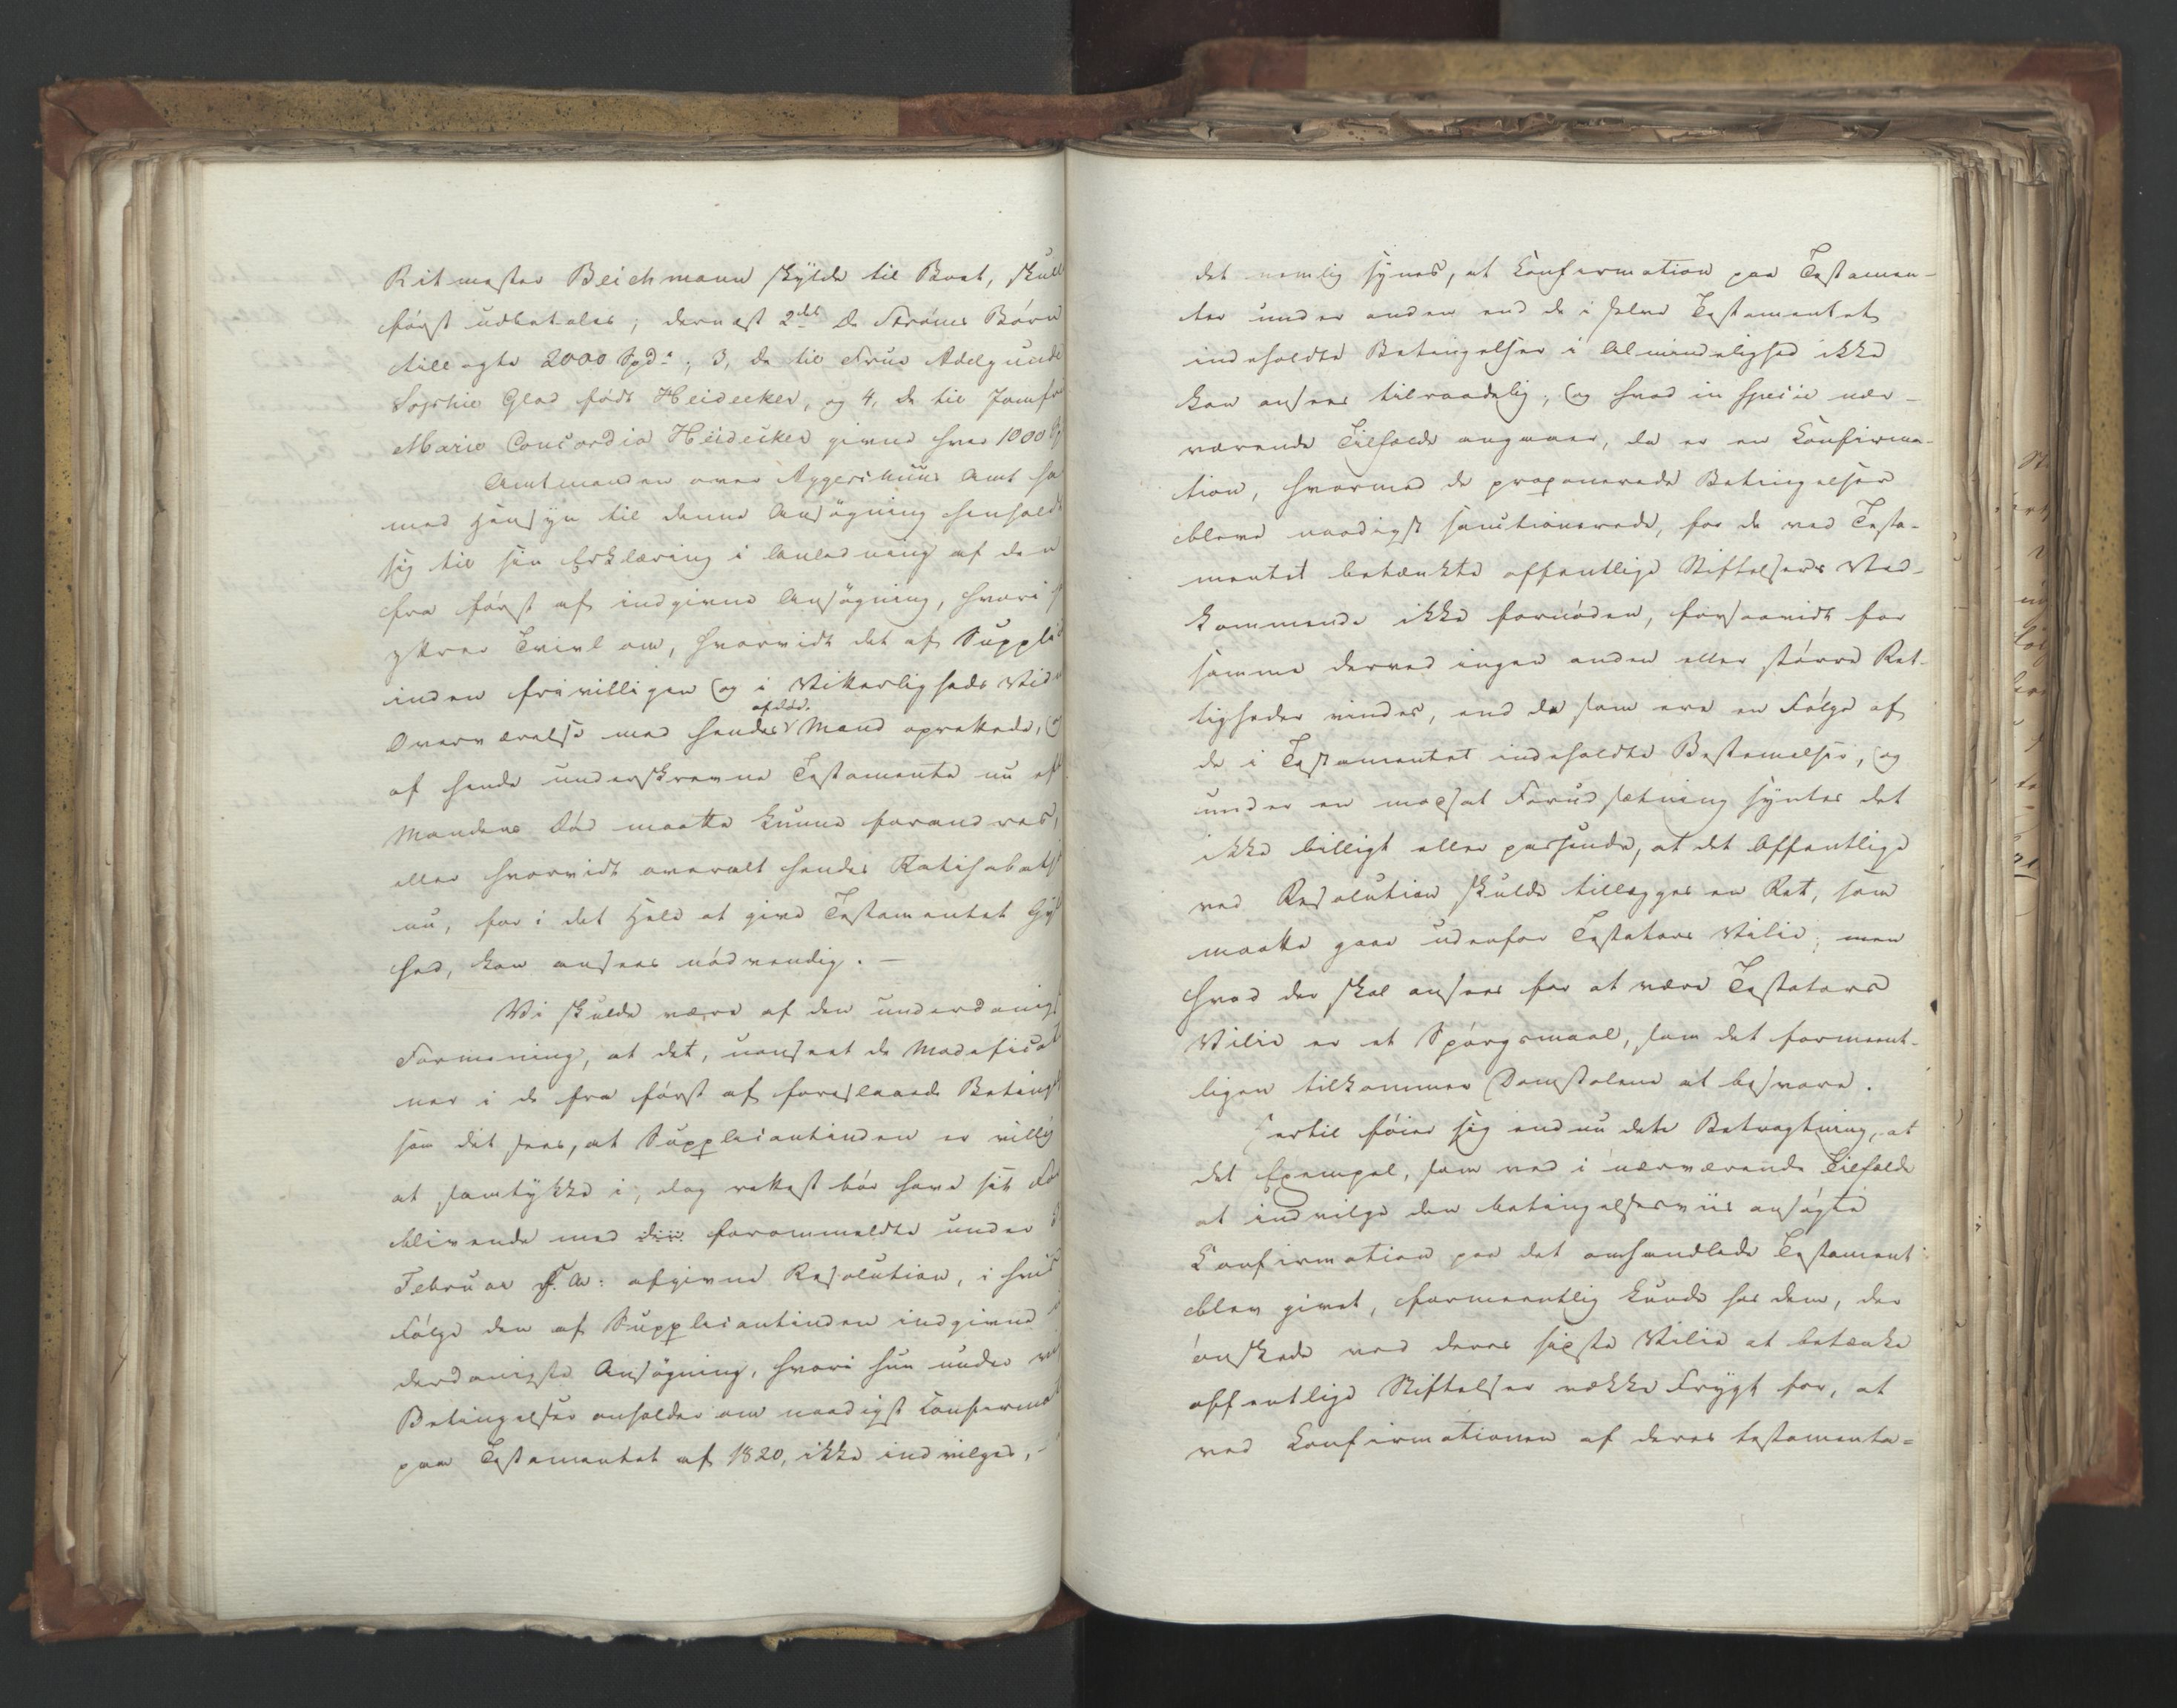 Ritmester Beichmann skylde til Boet, skulle
først udbetales; dernæst 2det De Strøms Børn
tillagte 2000 Spd.; 3, de til Frue Adelgunde
Sophie Glad født Heidecker, og 4, de til Jomfr
Marie Concordia Heidecker givne hver 1000
Amtmanden over Aggershuus Amt ha
med Hensyn til denne Ansøgning henholdt
sig til sin Erklæring i Anledning af den
fra først af indgivne Ansøgning, hvori
yttrer Tvivl om, hvorvidt det af Supplic
inden frivilligen og i Vitterligheds Vidn
Overværelse med hendes afdøde Mand oprettede, og
af hende underskrevne Testamente nu eft
Mandens Død maatte kunne forandres,
eller hvorvidt overalt hendes Ratihabats
nu, for i det Hele at give Testamentet Gyl
hed, kan ansees nødvendig. –
Vi skulde være af den underdanigs
Formening, at det, uanseet de Modificat
ner i de fra først af foreslaaede Betingel
som det sees, at Supplicantinden er villig
at samtykke i, dog rettest bør have sit For
blivende med den forommeldte under
Februar f. A. afgivne Resolution, i hvis
Følge den af Supplicantinden indgivne
derdanigste Ansøgning, hvori hun under
Betingelser anholder om naadigst Confirmat
paa Testamentet af 1820, ikke indvilges, –
det nemlig synes, at Confirmation paa Testamen-
ter under anden end de i selve Testamentet
indeholdte Betingelser i Almindelighed ikke
kan ansees tilraadelig; og hvad in specie nær-
værende Tilfælde angaaer, da er en Confirma-
tion, hvormed de proponerede Betingelser
bleve naadigst sanctionerede, for de ved Testa-
mentet betænkte offentlige Stiftelsers Ved-
kommende ikke fornøden, forsaavidt for
samme derved ingen anden eller større Ret-
tigheder vindes, end de som ere en Følge af
de i Testamentet indeholdte Bestemelser, og
under en modsat Forudsætning syntes det
ikke billigt eller passende, at det Offentlige
ved Resolution skulde tillægges en Ret, som
maatte gaae udenfor Testators Villie; men
hvad der skal ansees for at være Testators
Villie er et Spørgsmaal, som det formeent-
ligen tilkommer Domstolene at besvare.
Hertil føier sig endnu dette Betragtning, at
det Exempel, som ved i nærværende Tilfælde
at indvilge den betingelsesviis ansøgte
Confirmation paa det omhandlede Testament
blev givet, formeentlig kunde hos dem, der
ønskede ved deres sidste Villie at betænke
offentlige Stiftelser vække Frygt for, at
ved Confirmationen af deres testamenta=